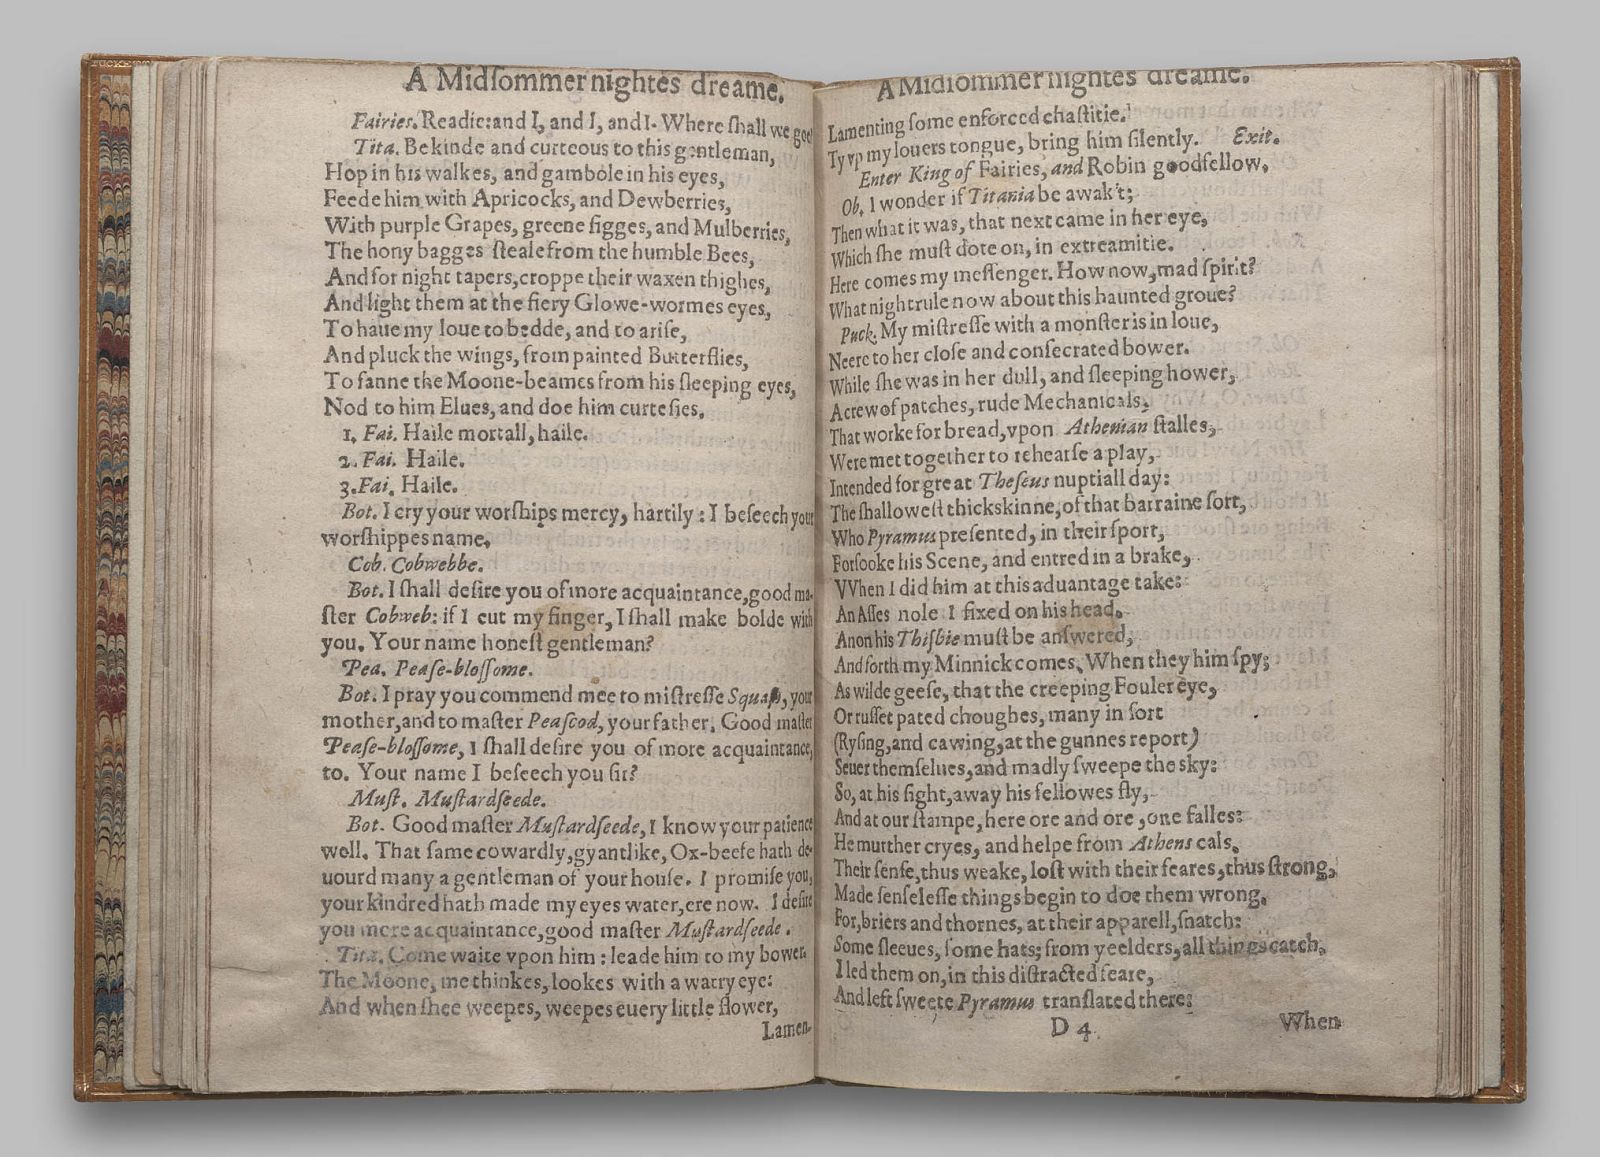 A Midſommer nightes dreame.
Fairies. Readie: and I, and I, and I. Where ſhall we goe?
Tita. Be kinde and curteous to this gentleman,
Hop in his walkes, and gambole in his eyes,
Feede him with Apricocks, and Dewberries,
With purple Grapes, greene figges, and Mulberries,
The hony bagges ſteale from the humble Bees,
And for night tapers, croppe their waxen thighes,
And light them at the fiery Glowe-wormes eyes,
To haue my loue to bedde, and to ariſe,
And pluck the wings, from painted Butterflies,
To fanne the Moone-beames from his ſleeping eyes,
Nod to him Elues, and doe him curteſies.
1. Fai. Haile mortall, haile.
2. Fai. Haile.
3. Fai. Haile.
Bot. I cry your worſhips mercy, hartily: I beſeech your
worſhippes name.
Cob. Cobwebbe.
Bot. I ſhall deſire you of more acquaintance, good ma-
ſter Cobweb: if I cut my finger, I ſhall make bolde with
you. Your name honeſt gentleman?
Pea. Peaſe-bloſſome.
Bot. I pray you commend mee to miſtreſſe Squaſh, your
mother, and to maſter Peaſcod, your father. Good maſter
Peaſe-bloſſome, I ſhall deſire you of more acquaintance,
to. Your name I beſeech you ſir?
Muſt. Muſtardſeede.
Bot. Good maſter Muſtardſeede, I know your patience
well. That ſame cowardly, gyantlike, Ox-beefe hath de-
uourd many a gentleman of your houſe. I promiſe you,
your kindred hath made my eyes water, ere now. I deſire
you more acquaintance, good maſter Muſtardſeede.
Tita. Come waite vpon him: leade him to my bower.
The Moone, me thinkes, lookes with a watry eye:
And when ſhee weepes, weepes euery little flower,
Lamen-
A Midſommer nightes dreame.
Lamenting ſome enforced chaſtitie.
Ty vp my louers tongue, bring him ſilently. Exit.
Enter King of Fairies, and Robin goodfellow.
Ob. I wonder if Titania be awak't;
Then what it was, that next came in her eye,
Which ſhe muſt dote on, in extreamitie.
Here comes my meſſenger. How now, mad ſpirit?
What nightrule now about this haunted groue?
Puck. My miſtreſſe with a monſter is in loue,
Neere to her cloſe and conſecrated bower.
While ſhe was in her dull, and ſleeping hower,
A crew of patches, rude Mechanicals,
That worke for bread, vpon Athenian ſtalles,
Were met together to rehearſe a play,
Intended for great Theſeus nuptiall day:
The ſhalloweſt thickskinne, of that barraine ſort,
Who Pyramus preſented, in their ſport,
Forſooke his Scene, and entred in a brake,
VVhen I did him at this aduantage take:
An Aſſes nole I fixed on his head.
Anon his Thiſbie muſt be anſwered,
And forth my Minnick comes. When they him ſpy;
As wilde geeſe, that the creeping Fouler eye,
Or ruſſet pated choughes, many in ſort
(Ryſing, and cawing, at the gunnes report)
Seuer themſelues, and madly ſweepe the sky:
So, at his ſight, away his fellowes fly,
And at our ſtampe, here ore and ore, one falles:
He murther cryes, and helpe from Athens cals.
Their ſenſe, thus weake, loſt with their feares, thus ſtrong,
Made ſenſeleſſe things begin to doe them wrong.
For, briers and thornes, at their apparell, ſnatch:
Some ſleeues, ſome hats; from yeelders, all things catch.
I led them on, in this diſtracted feare,
And left ſweete Pyramus tranſlated there:
D 4
When